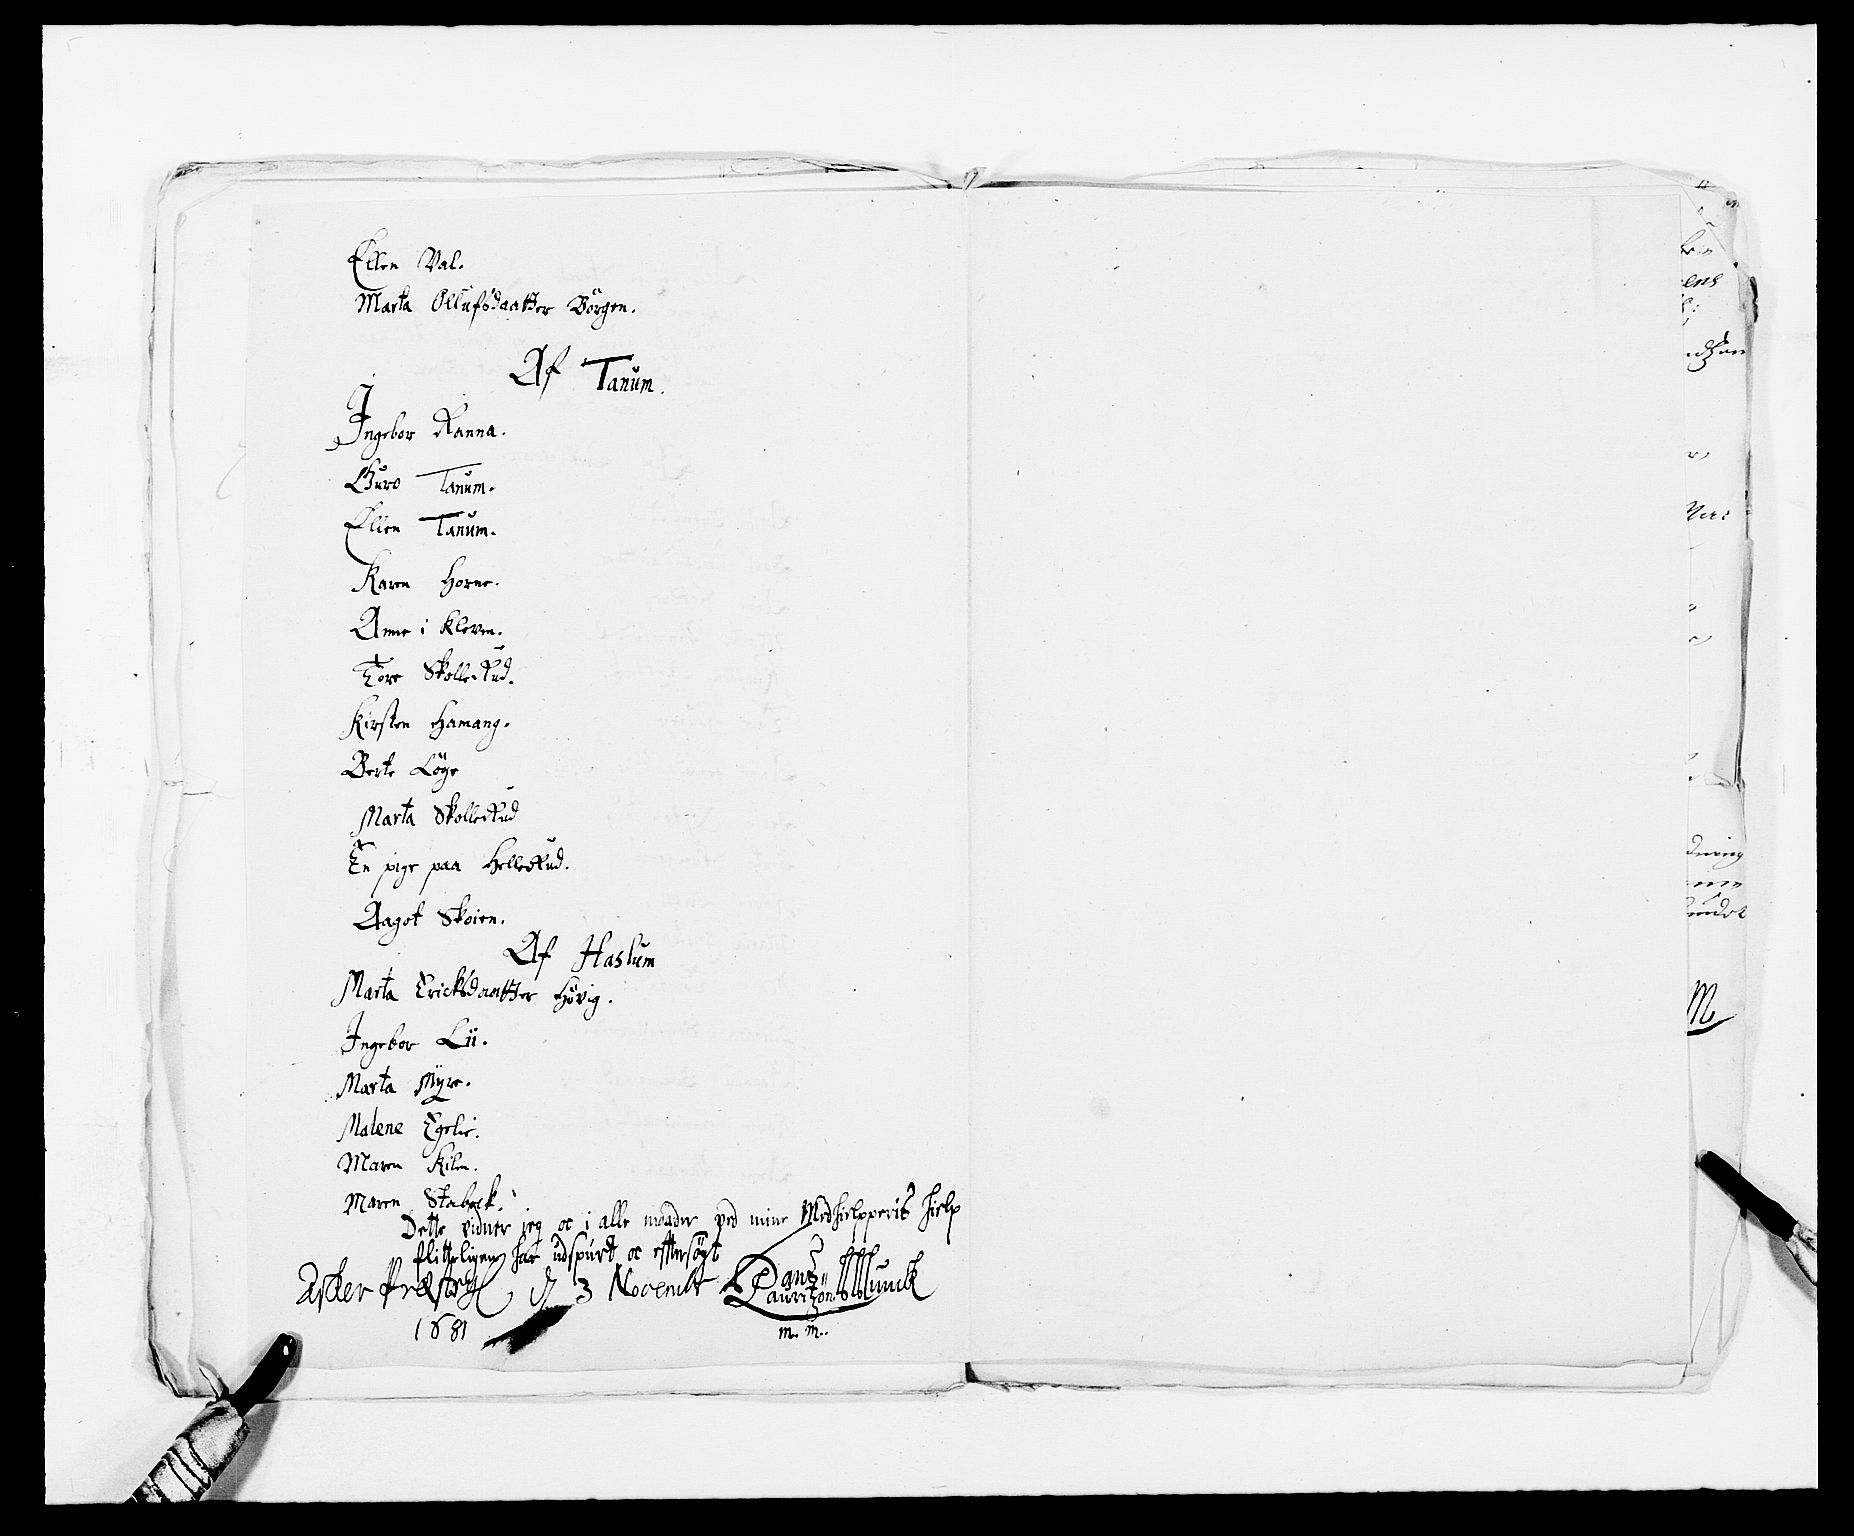 Ellen Val.
Marta Ollufsdaatter Börgen.
Af Tanum.
Ingebor Ranna.
Guro Tanum.
Ellen Tanum.
Karen Horne.
Anne i Kleven.
Tore Skollerud.
Kirsten Hamang.
Berte Löge
Marta Skollerud
En pige paa Hellerud.
Aagot Skoien.
Af Haslum
Marta Ericksdaatter Hövig.
Ingebor Lii.
Marta Myre.
Malene Egelie.
Maren Kilen.
Maren Stabeck.
Dette vidner jeg oc i alle maader ved mine Medhielpperis hielp
flitteligen har udspurt oc efftersögt
Asker Præstegl 3 November
Lauritzøn Munck
1681
m. m.